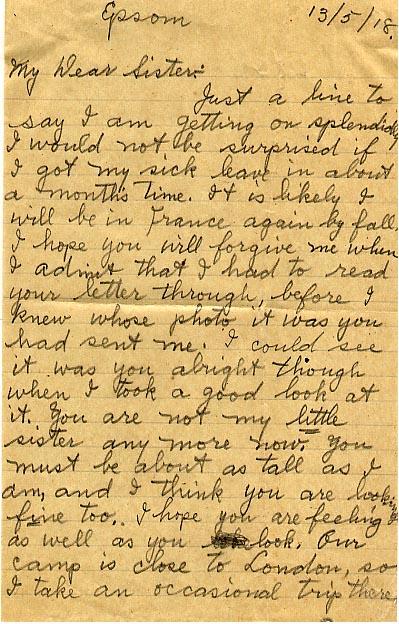 Epsom 13/5/18.
My Dear Sister:
Just a line to
say I am getting on splendidly
I would not be surprised if
I got my sick leave in about
a month's time. It is likely I
will be in France again by fall.
I hope you will forgive me when
I admit that I had to read
your letter through, before I
knew whose photo it was you
had sent me. I could see
it was you alright though
when I took a good look at
it. You are not my little
sister any more now. You
must be about as tall as I
am, and I think you are looking
fine too. I hope you are feeling
as well as you look. Our
camp is close to London, so
I take an occasional trip there,